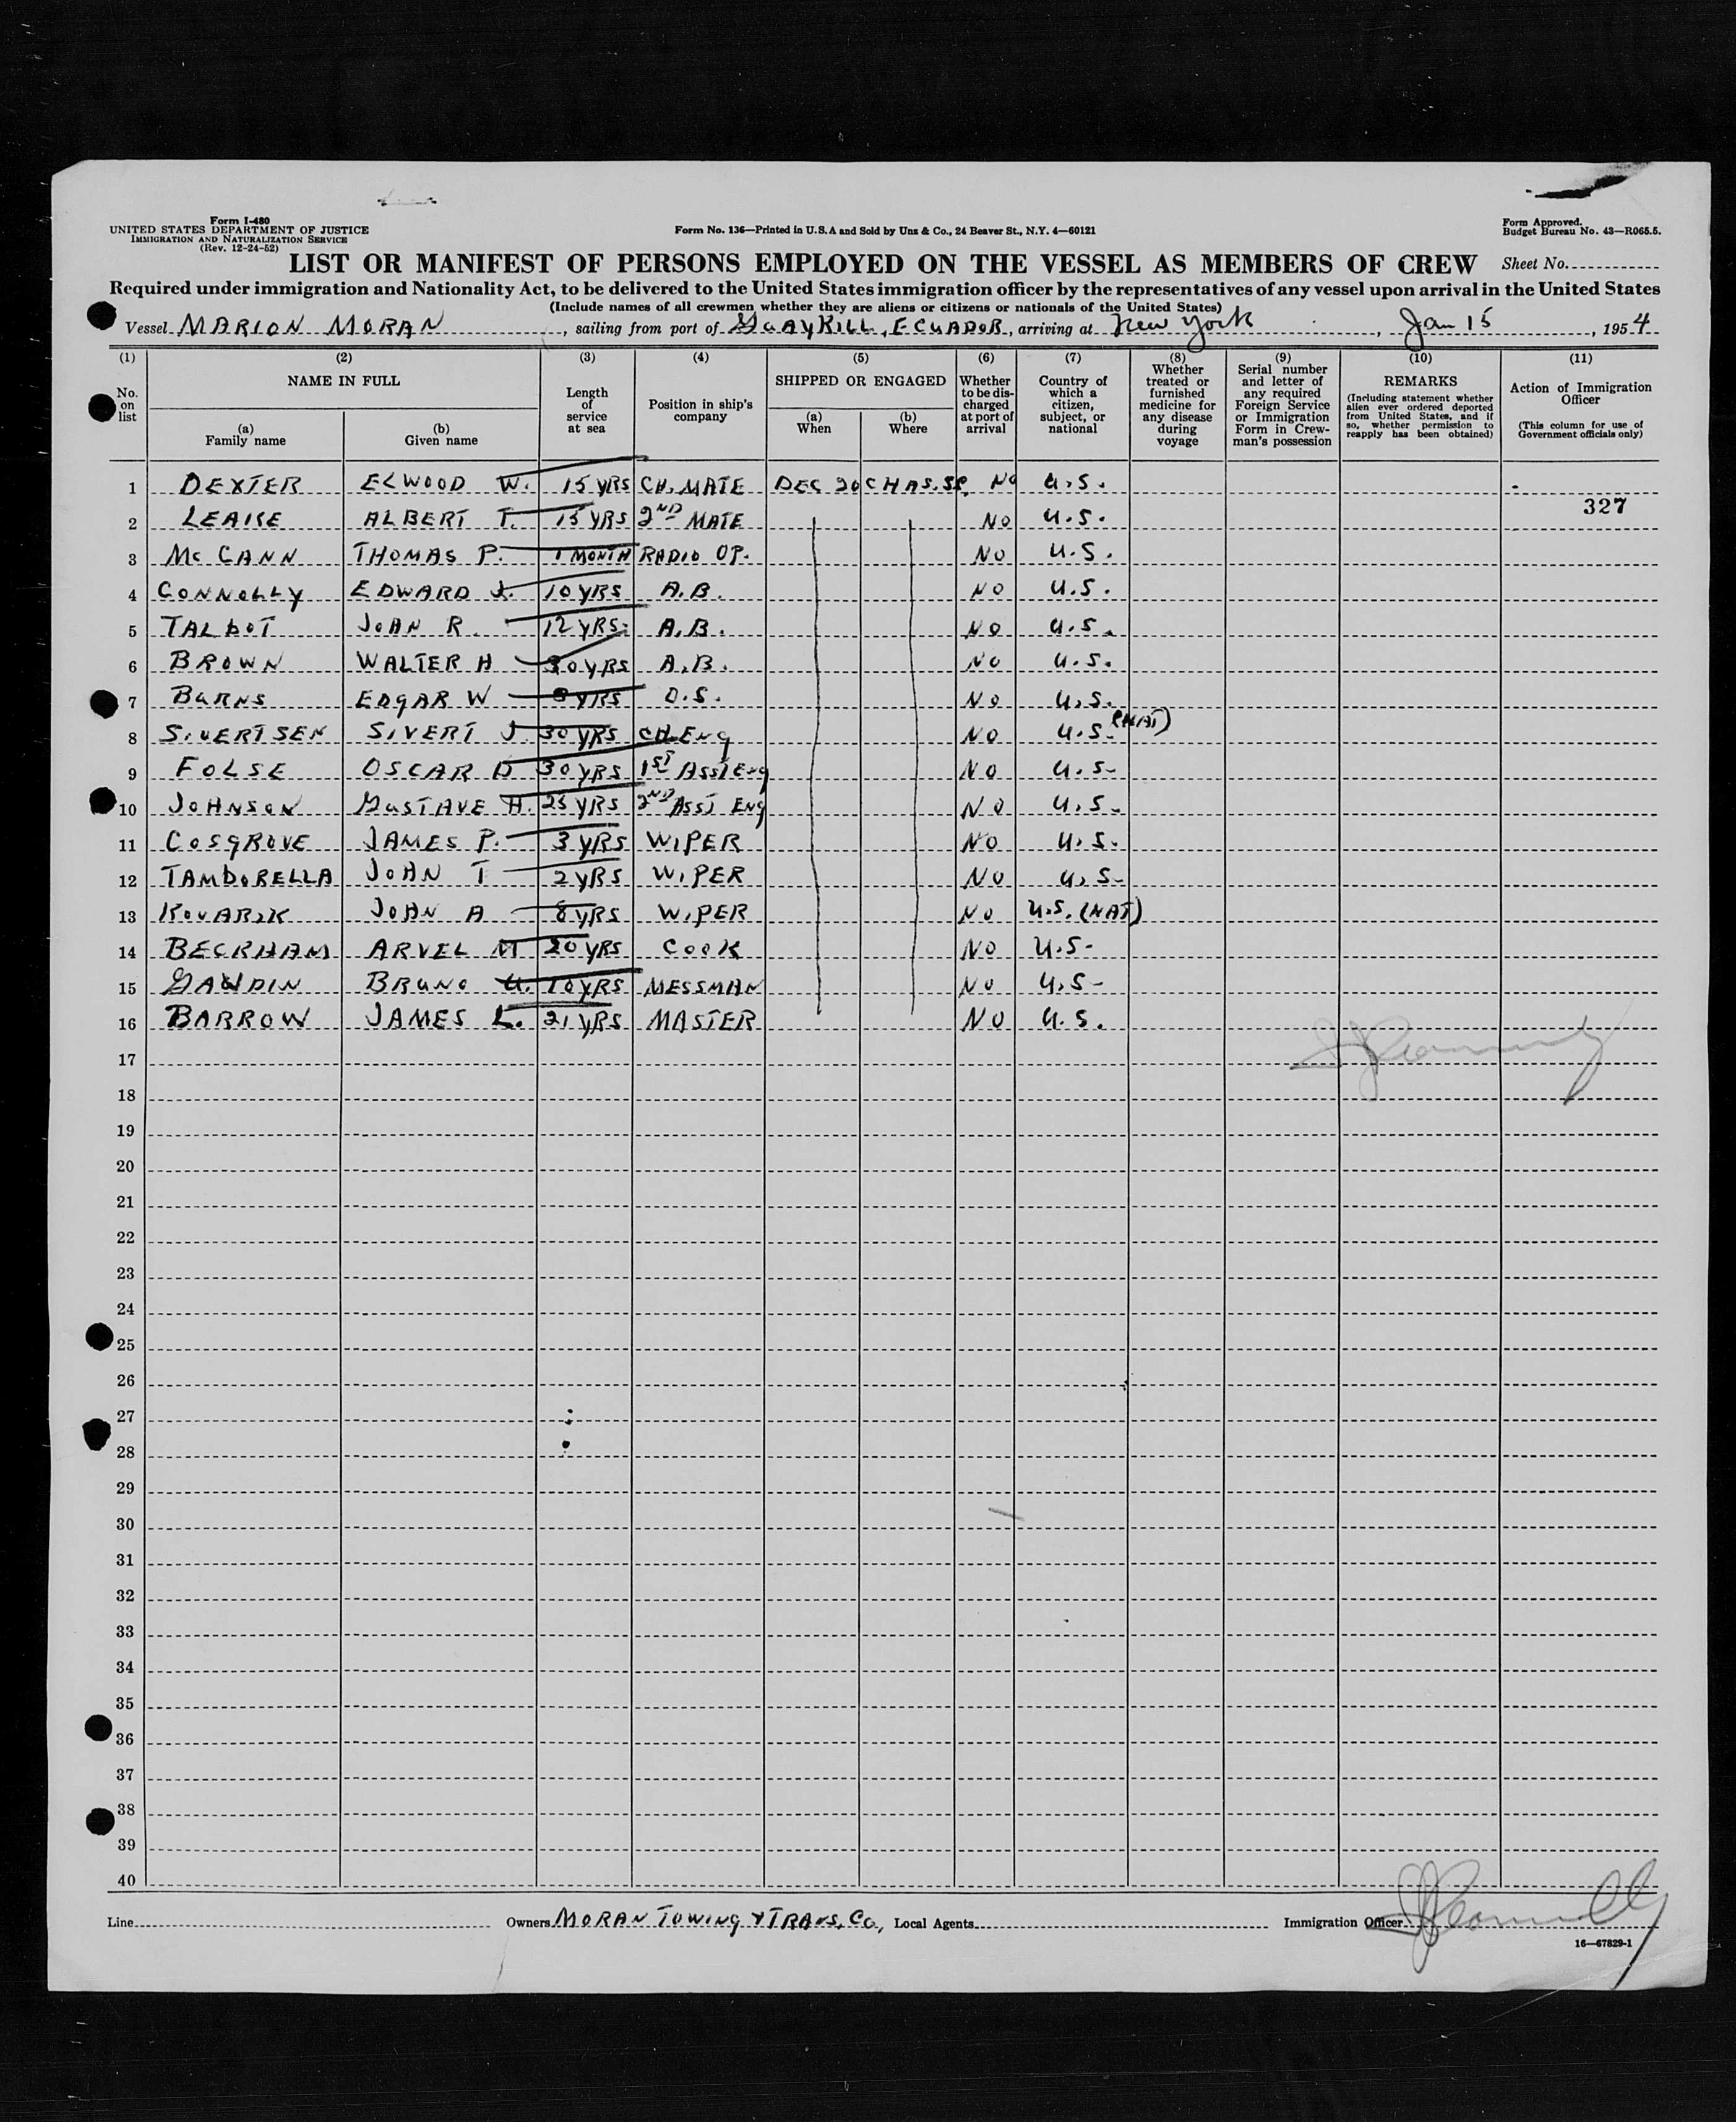 Form I-480
UNITED STATES DEPARTMENT OF JUSTICE
IMMIGRATION AND NATURALIZATION SERVICE
(Rev. 12-24-52)
Form No. 136—Printed in U.S.A and Sold by Unz & Co., 24 Beaver St., N.Y. 4—60121
Form Approved.
Budget Bureau No. 43—R065.5.
LIST OR MANIFEST OF PERSONS EMPLOYED ON THE VESSEL AS MEMBERS OF CREW Sheet No.
Required under immigration and Nationality Act, to be delivered to the United States immigration officer by the representatives of any vessel upon arrival in the United States
(Include names of all crewmen whether they are aliens or citizens or nationals of the United States)
Vessel MARION MORAN, sailing from port of GUAYKILL, ECUADOR, arriving at New York, Jan 15, 1954
(1) (2) (3) (4) (5) (6) (7) (8) (9) (10) (11)
No. on list
NAME IN FULL
(a) Family name
(b) Given name
Length of service at sea
Position in ship's company
SHIPPED OR ENGAGED
(a) When
(b) Where
Whether to be discharged at port of arrival
Country of which a citizen, subject, or national
Whether treated or furnished medicine for any disease during voyage
Serial number and letter of any required Foreign Service or Immigration Form in Crewman's possession
REMARKS
(Including statement whether alien ever ordered deported from United States, and if so, whether permission to reapply has been obtained)
Action of Immigration Officer
(This column for use of Government officials only)
1 DEXTER ELWOOD W. 15 YRS CH. MATE DEC 20 CHAS. SC. NO U.S.
327
2 LEAKE ALBERT T. 15 YRS 2ND MATE NO U.S.
3 McCANN THOMAS P. 1 MONTH RADIO OP. NO U.S.
4 CONNOLLY EDWARD J. 10 YRS A.B. NO U.S.
5 TALBOT JOHN R. 12 YRS. A.B. NO U.S.
6 BROWN WALTER H 30 YRS A.B. NO U.S.
7 BURNS EDGAR W YRS O.S. NO U.S.
8 SIVERTSEN SIVERT J. 30 YRS CH ENG NO U.S. (NAT)
9 FOLSE OSCAR D 30 YRS 1ST ASST ENG NO U.S.
10 JOHNSON GUSTAVE H. 25 YRS 2ND ASST ENG NO U.S.
11 COSGROVE JAMES P. 3 YRS WIPER NO U.S.
12 TAMBORELLA JOHN T 2 YRS WIPER NO U.S.
13 KOVARIK JOHN A 8 YRS WIPER NO U.S. (NAT)
14 BECKHAM ARVEL M 20 YRS COOK NO U.S.
15 GAUDIN BRUNO U. 10 YRS MESSMAN NO U.S.
16 BARROW JAMES L. 21 YRS MASTER NO U.S.
17
18
19
20
21
22
23
24
25
26
27
28
29
30
31
32
33
34
35
36
37
38
39
40
Line Owners MORAN TOWING & TRANS. CO, Local Agents Immigration Officer
16—67829-1